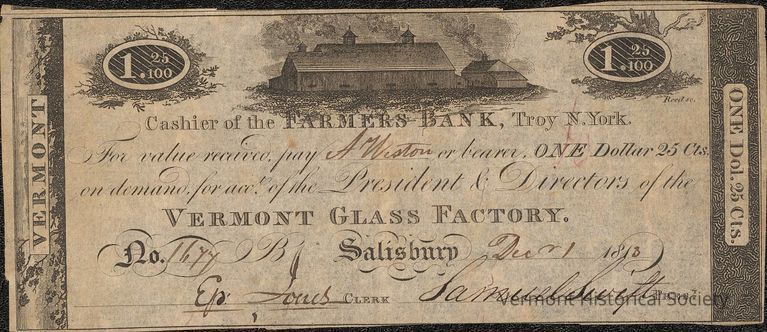 1.25/100
1.25/100
Reed sc.
VERMONT
Cashier of the FARMERS BANK, Troy N.York.
For value received, pay A Weston or bearer, ONE Dollar 25 Cts.
on demand, for acct. of the President & Directors of the
VERMONT GLASS FACTORY.
No. 1677 B Salisbury Decr 1 1813
Ep. Jones CLERK Samuel Swift PRESt.
ONE Dol. 25 Cts.
Vermont Historical Society